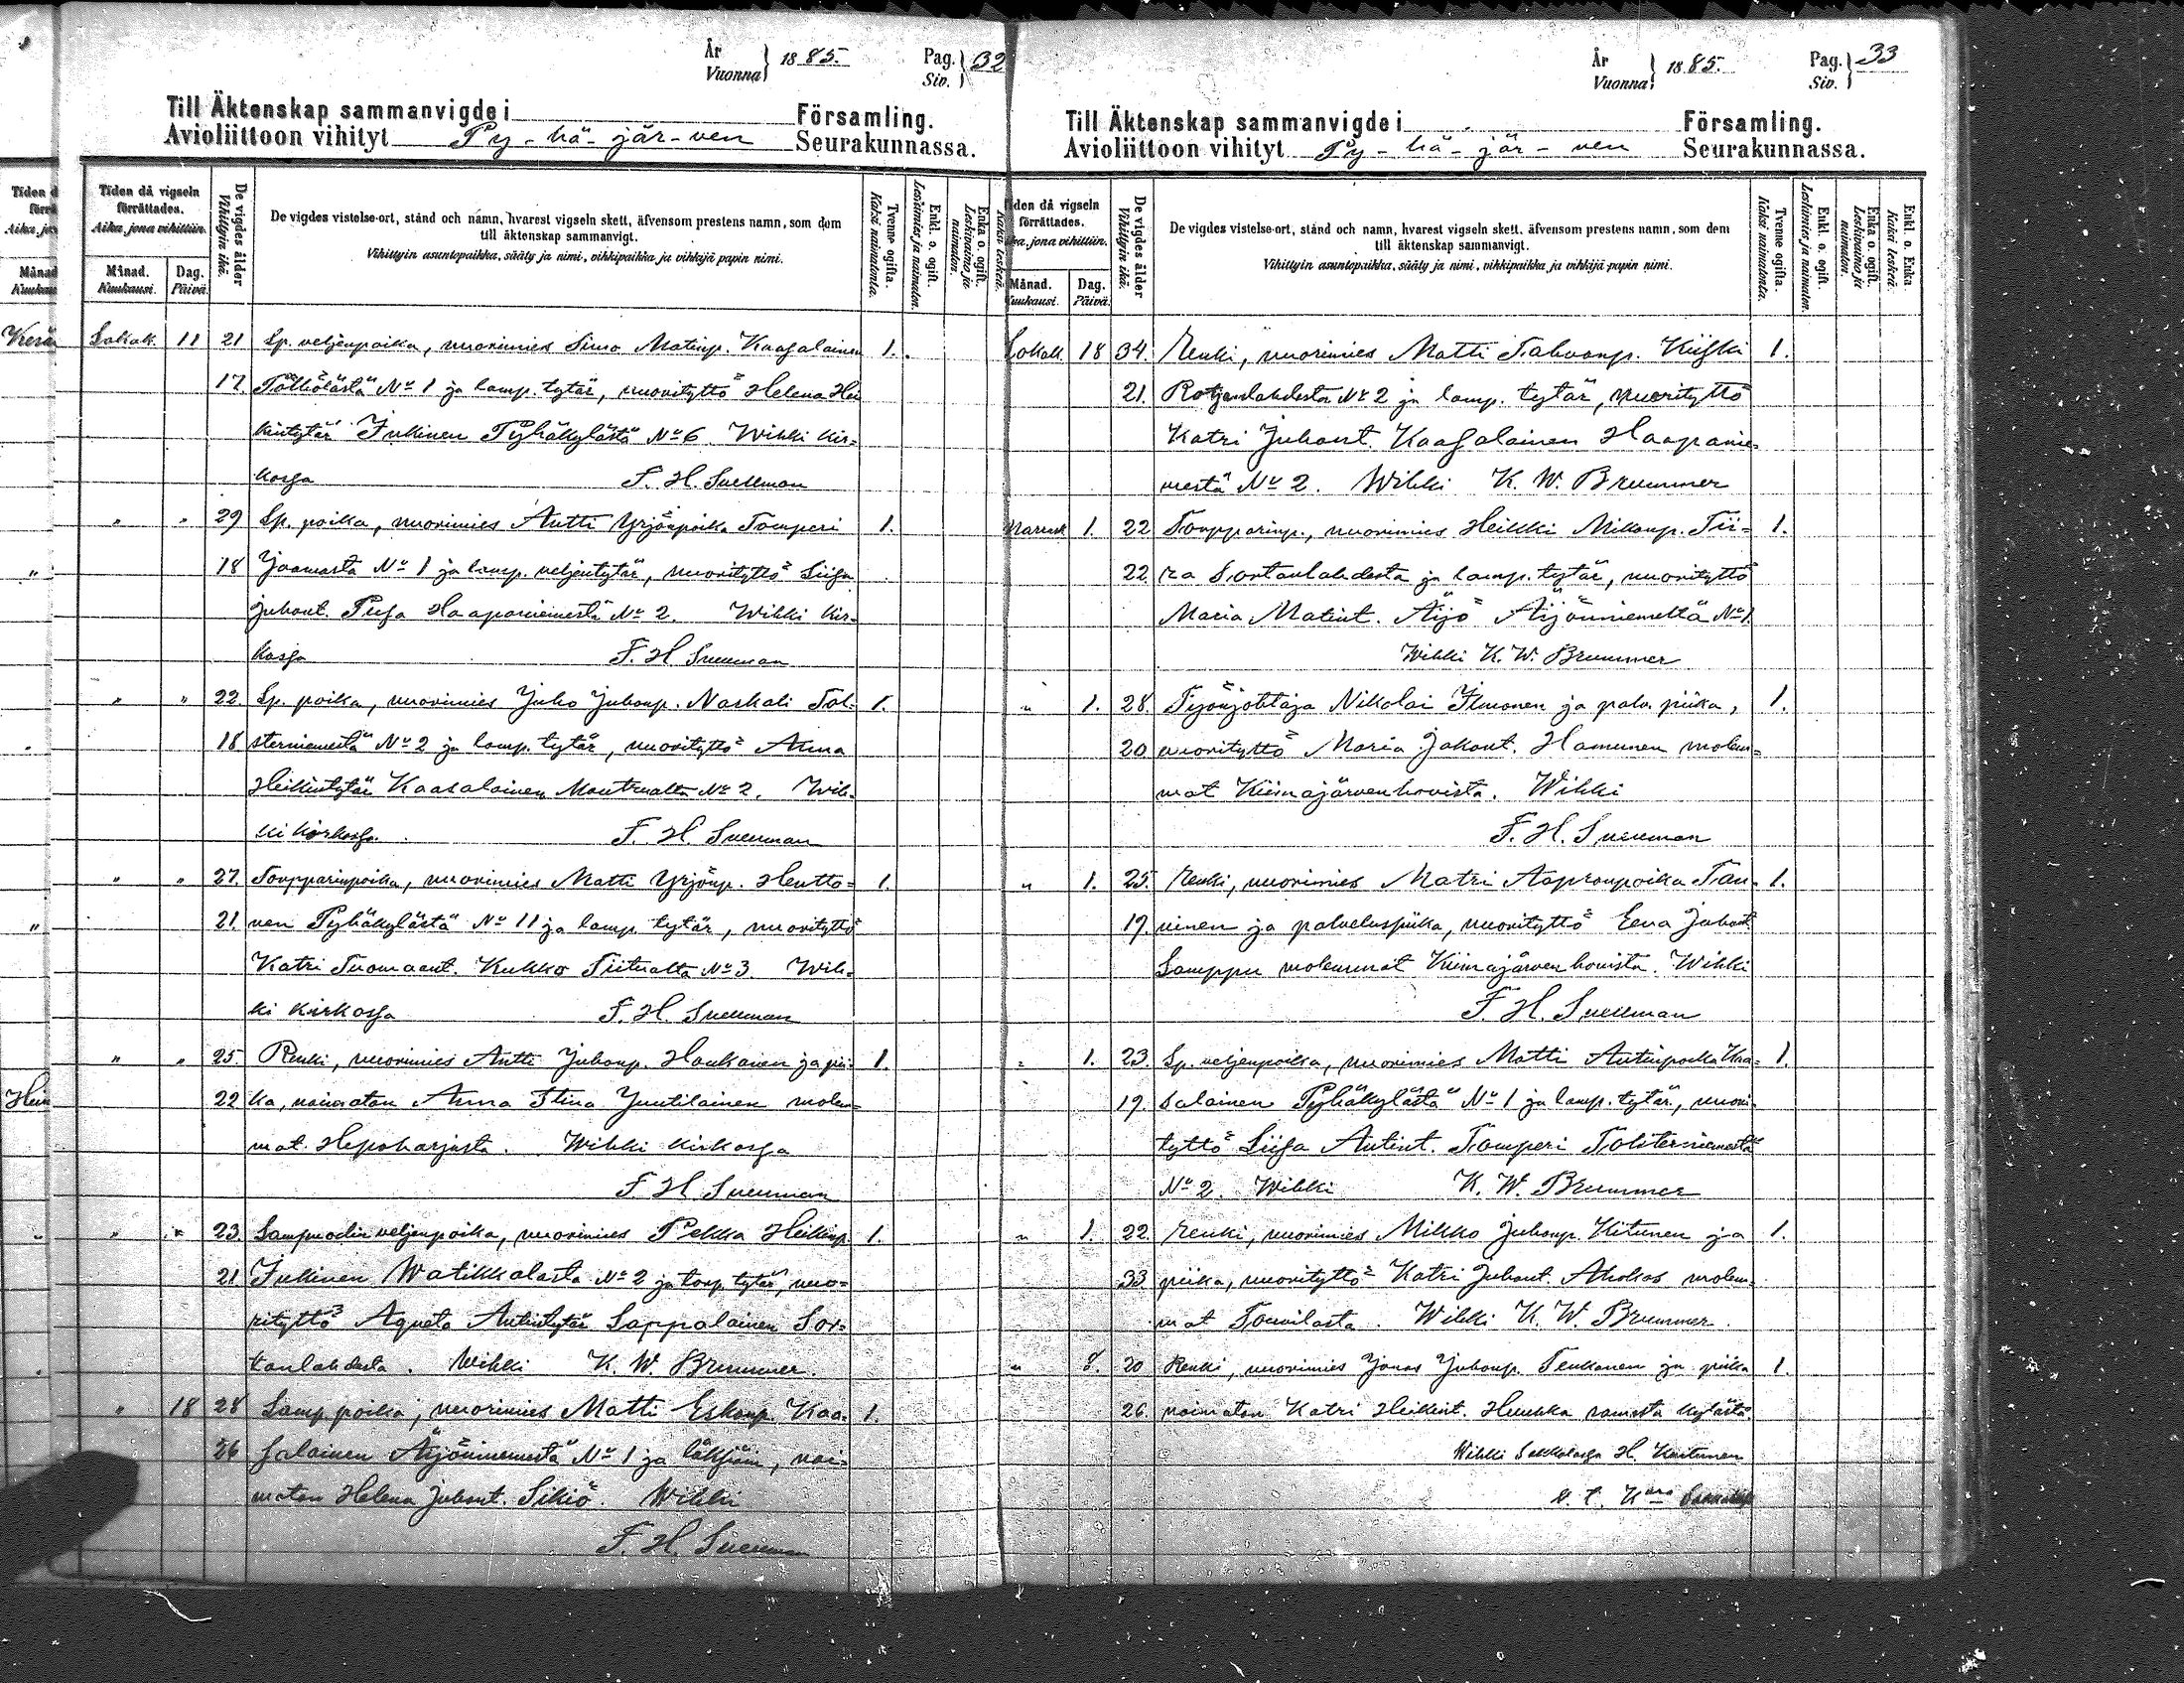 År
Vuonna 1885.
Pag.
Siv. 32
Till Äktenskap sammanvigde i Församling.
Avioliittoon vihityt Py-hä-jär-ven Seurakunnassa.
Tiden då vigseln förrättades.
Aika, jona vihittiin.
Månad. Kuukausi.
Dag. Päivä.
De vigdes ålder
Vihittyin ikä.
De vigdes vistelse-ort, stånd och namn, hvarest vigseln skett, äfvensom prestens namn, som dem
till äktenskap sammanvigt.
Vihittyin asuntopaikka, sääty ja nimi, vihkipaikka ja vihkijä papin nimi.
Tvenne ogifta.
Kaksi naimatonta.
Enkl. o. ogift.
Leskimies ja naimaton.
Enka o. ogift.
Leskivaimo ja naimaton.
Kaksi leskeä.
Lokak. 11 21 Sp. veljenpoika, nuorimies Simo Matinp. Kaasalainen 1.
17. Töllölästä No 1 ja lamp. tytär, nuorityttö Helena Hei
kintytär Inkinen Pyhäkylästä No 6. Wihki kir=
kossa F. H. Snellman
" " 29 Sp. poika, nuorimies Antti Yrjönpoika Tomperi 1.
18 Jaamasta No 1 ja lamp. veljentytär, nuorityttö Liisa
Juhont. Pusa Haapaniemestä No 2. Wihki kir=
kossa F. H. Snellman
" " 22. Sp. poika, nuorimies Juho Juhonp. Naskali Tol- 1.
18 sterniemestä No 2 ja lamp. tytär, nuorityttö Anna
Heikintytär Kaasalainen Montrualta No 2. Wih-
ki kirkossa. F. H. Snellman
" " 27. Torpparinpoika, nuorimies Matti Yrjönp. Hentto= 1.
21. nen Pyhäkylästä No 11 ja lamp. tytär, nuorityttö
Katri Tuomaant. Kukko Tiitualta No 3. Wih-
ki kirkossa F. H. Snellman
" " 25. Renki, nuorimies Antti Juhonp. Haukanen ja pii- 1.
22 ka, naimaton Anna Stina Juutilainen molem=
mat Hepoharjusta. Wihki kirkossa
F. H. Snellman
" " 23. Lampuodin veljenpoika, nuorimies Pekka Heikinp. 1.
21 Inkinen Watikkalasta No 2 ja torp. tytär, nuo=
rityttö Agneta Antintytär Lappalainen Sor=
tanlahdesta. Wihki K. W. Brummer.
" 18 28 Lamp. poika, nuorimies Matti Eskonp. Kaa- 1.
26 salainen Äijönniemestä No 1 ja läksiäin, nai=
maton Helena Juhont. Sikiö. Wihki
F. H. Snellman
År
Vuonna 1885.
Pag.
Siv. 33
Till Äktenskap sammanvigde i Församling.
Avioliittoon vihityt Py-hä-jär-ven Seurakunnassa.
Månad. Kuukausi.
Dag. Päivä.
De vigdes ålder
Vihittyin ikä.
De vigdes vistelse-ort, stånd och namn, hvarest vigseln skett, äfvensom prestens namn, som dem
till äktenskap sammanvigt.
Vihittyin asuntopaikka, sääty ja nimi, vihkipaikka ja vihkijä papin nimi.
Tvenne ogifta.
Kaksi naimatonta.
Enkl. o. ogift.
Leskimies ja naimaton.
Enka o. ogift.
Leskivaimo ja naimaton.
Enkl. o. Enka.
Kaksi leskeä.
Lokak. 18 34. Renki, nuorimies Matti Tahvonp. Kiiski 1.
21. Rotjanlahdesta No 2 ja lamp. tytär, nuorityttö
Katri Juhont. Kaasalainen Haapanie-
mestä No 2. Wihki K. W. Brummer
Marrask 1. 22 Torpparinp., nuorimies Heikki Mikonp. Tii= 1.
22 ra Sortanlahdesta ja lamp. tytär, nuorityttö
Maria Matint. Äijö Äijönniemeltä No 1.
Wihki K. W. Brummer
" 1. 28. Työnjohtaja Nikolai Ilmonen ja palv. piika, 1.
20 nuorityttö Maria Jakont. Hamunen molem=
mat Kiimajärvenhovista. Wihki
F. H. Snellman
" 1. 25. Renki, nuorimies Matri Aapronpoika Tau- 1.
19. ninen ja palveluspiika, nuorityttö Eeva Juhont.
Samppu molemmat Kiimajärven hovista. Wihki
F. H. Snellman
" 1. 23. Sp. veljenpoika, nuorimies Matti Antinpoika Kaa= 1.
19. salainen Pyhäkylästä No 1 ja lamp. tytär, nuori-
tyttö Liisa Antint. Tomperi Tolsterniemestä
No 2. Wihki K. W. Brummer
" 1. 22. Renki, nuorimies Mikko Juhonp. Kitunen ja 1.
33 piika, nuorityttö Katri Juhont. Ahokas molem=
mat Touvilasta. Wihki K. W. Brummer.
" 8. 20 Renki, nuorimies Jonas Juhonp. Tenkanen ja piika 1.
26. naimaton Katri Heikint. Huuhka samasta kylästä.
Wihki Sakkolassa H.
v. t.